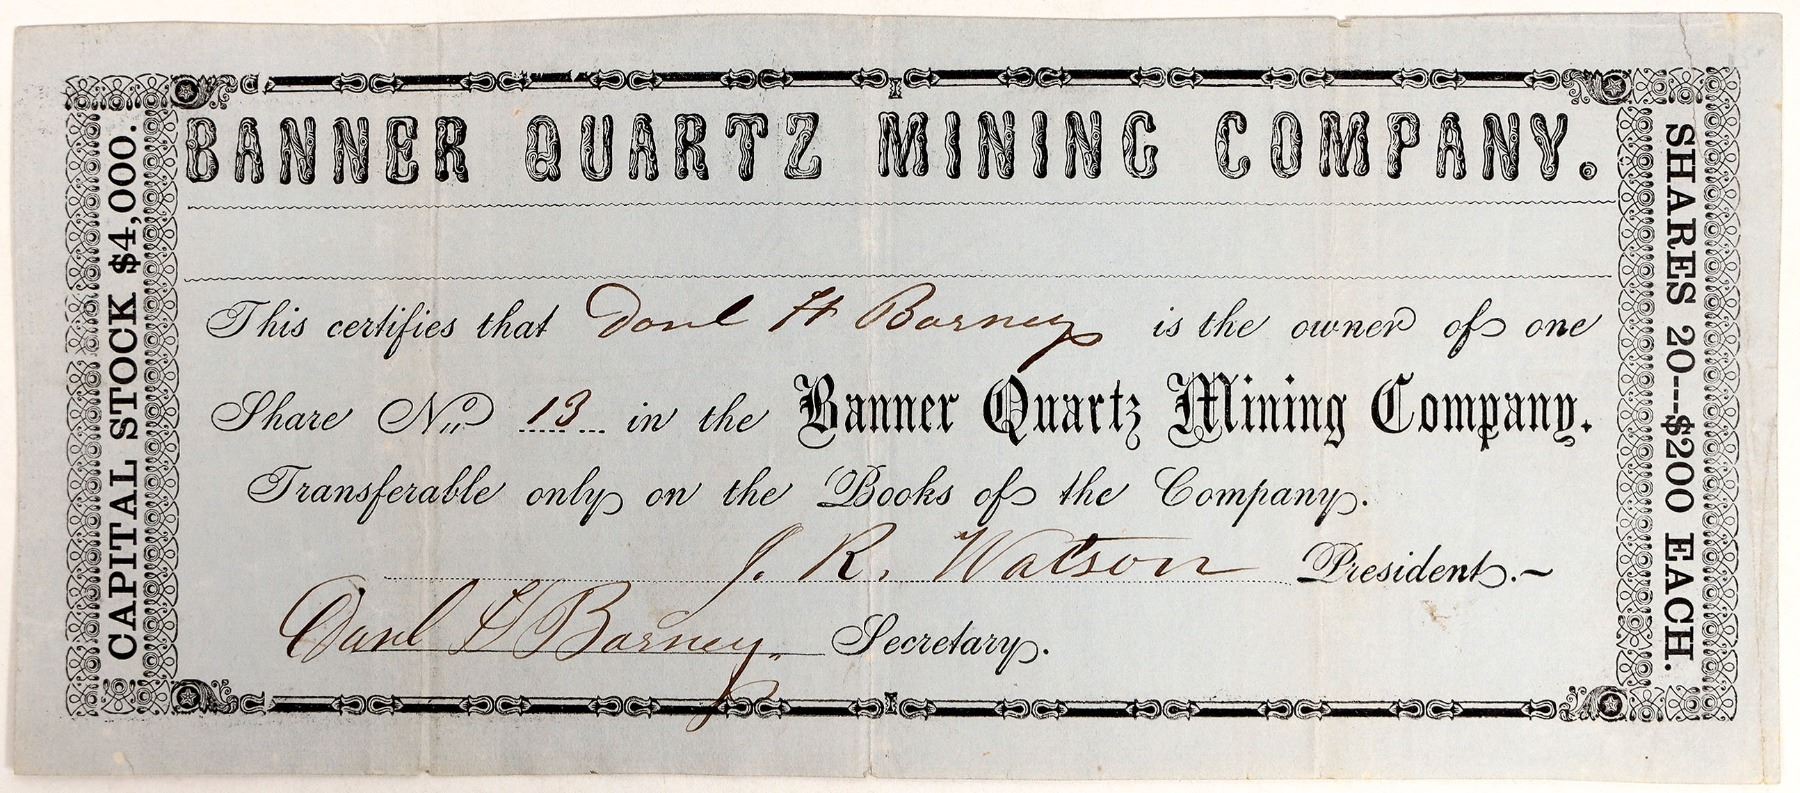 BANNER QUARTZ MINING COMPANY.
CAPITAL STOCK $4,000.
This certifies that Danl H Barney is the owner of one
Share No. 13 in the Banner Quartz Mining Company.
Transferable only on the Books of the Company.
J. R. Watson President.
Danl H Barney Secretary.
SHARES 20---$200 EACH.